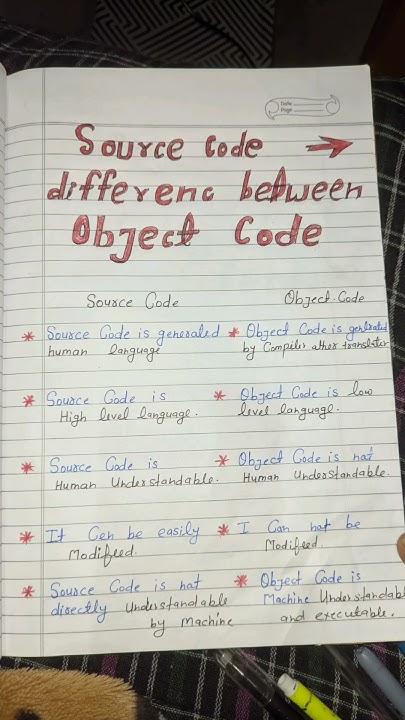 Date
Page
Source Code →
differenc between
Object Code
Source Code
Object Code
* Source Code is generated
human language
* Object Code is generated
by Compiler other translater
* Source Code is
High level language.
* Object Code is low
level language.
* Source Code is
Human Understandable.
* Object Code is not
Human Understandable.
* It Cen be easily
Modifeed.
* I Can not be
Modifeed.
* Source Code is not
directly Understandable
by Machine
* Object Code is
Machine Understandabl
and executable.